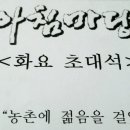 아침마당
<화요 초대석>
"농촌에 젊음을 걸